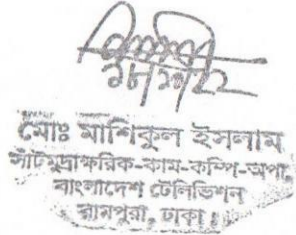 ১৮/১০/২২
মোঃ মাশিকুল ইসলাম
সাঁটমুদ্রাক্ষরিক-কাম-কম্পি-অপা,
বাংলাদেশ টেলিভিশন
রামপুরা, ঢাকা।